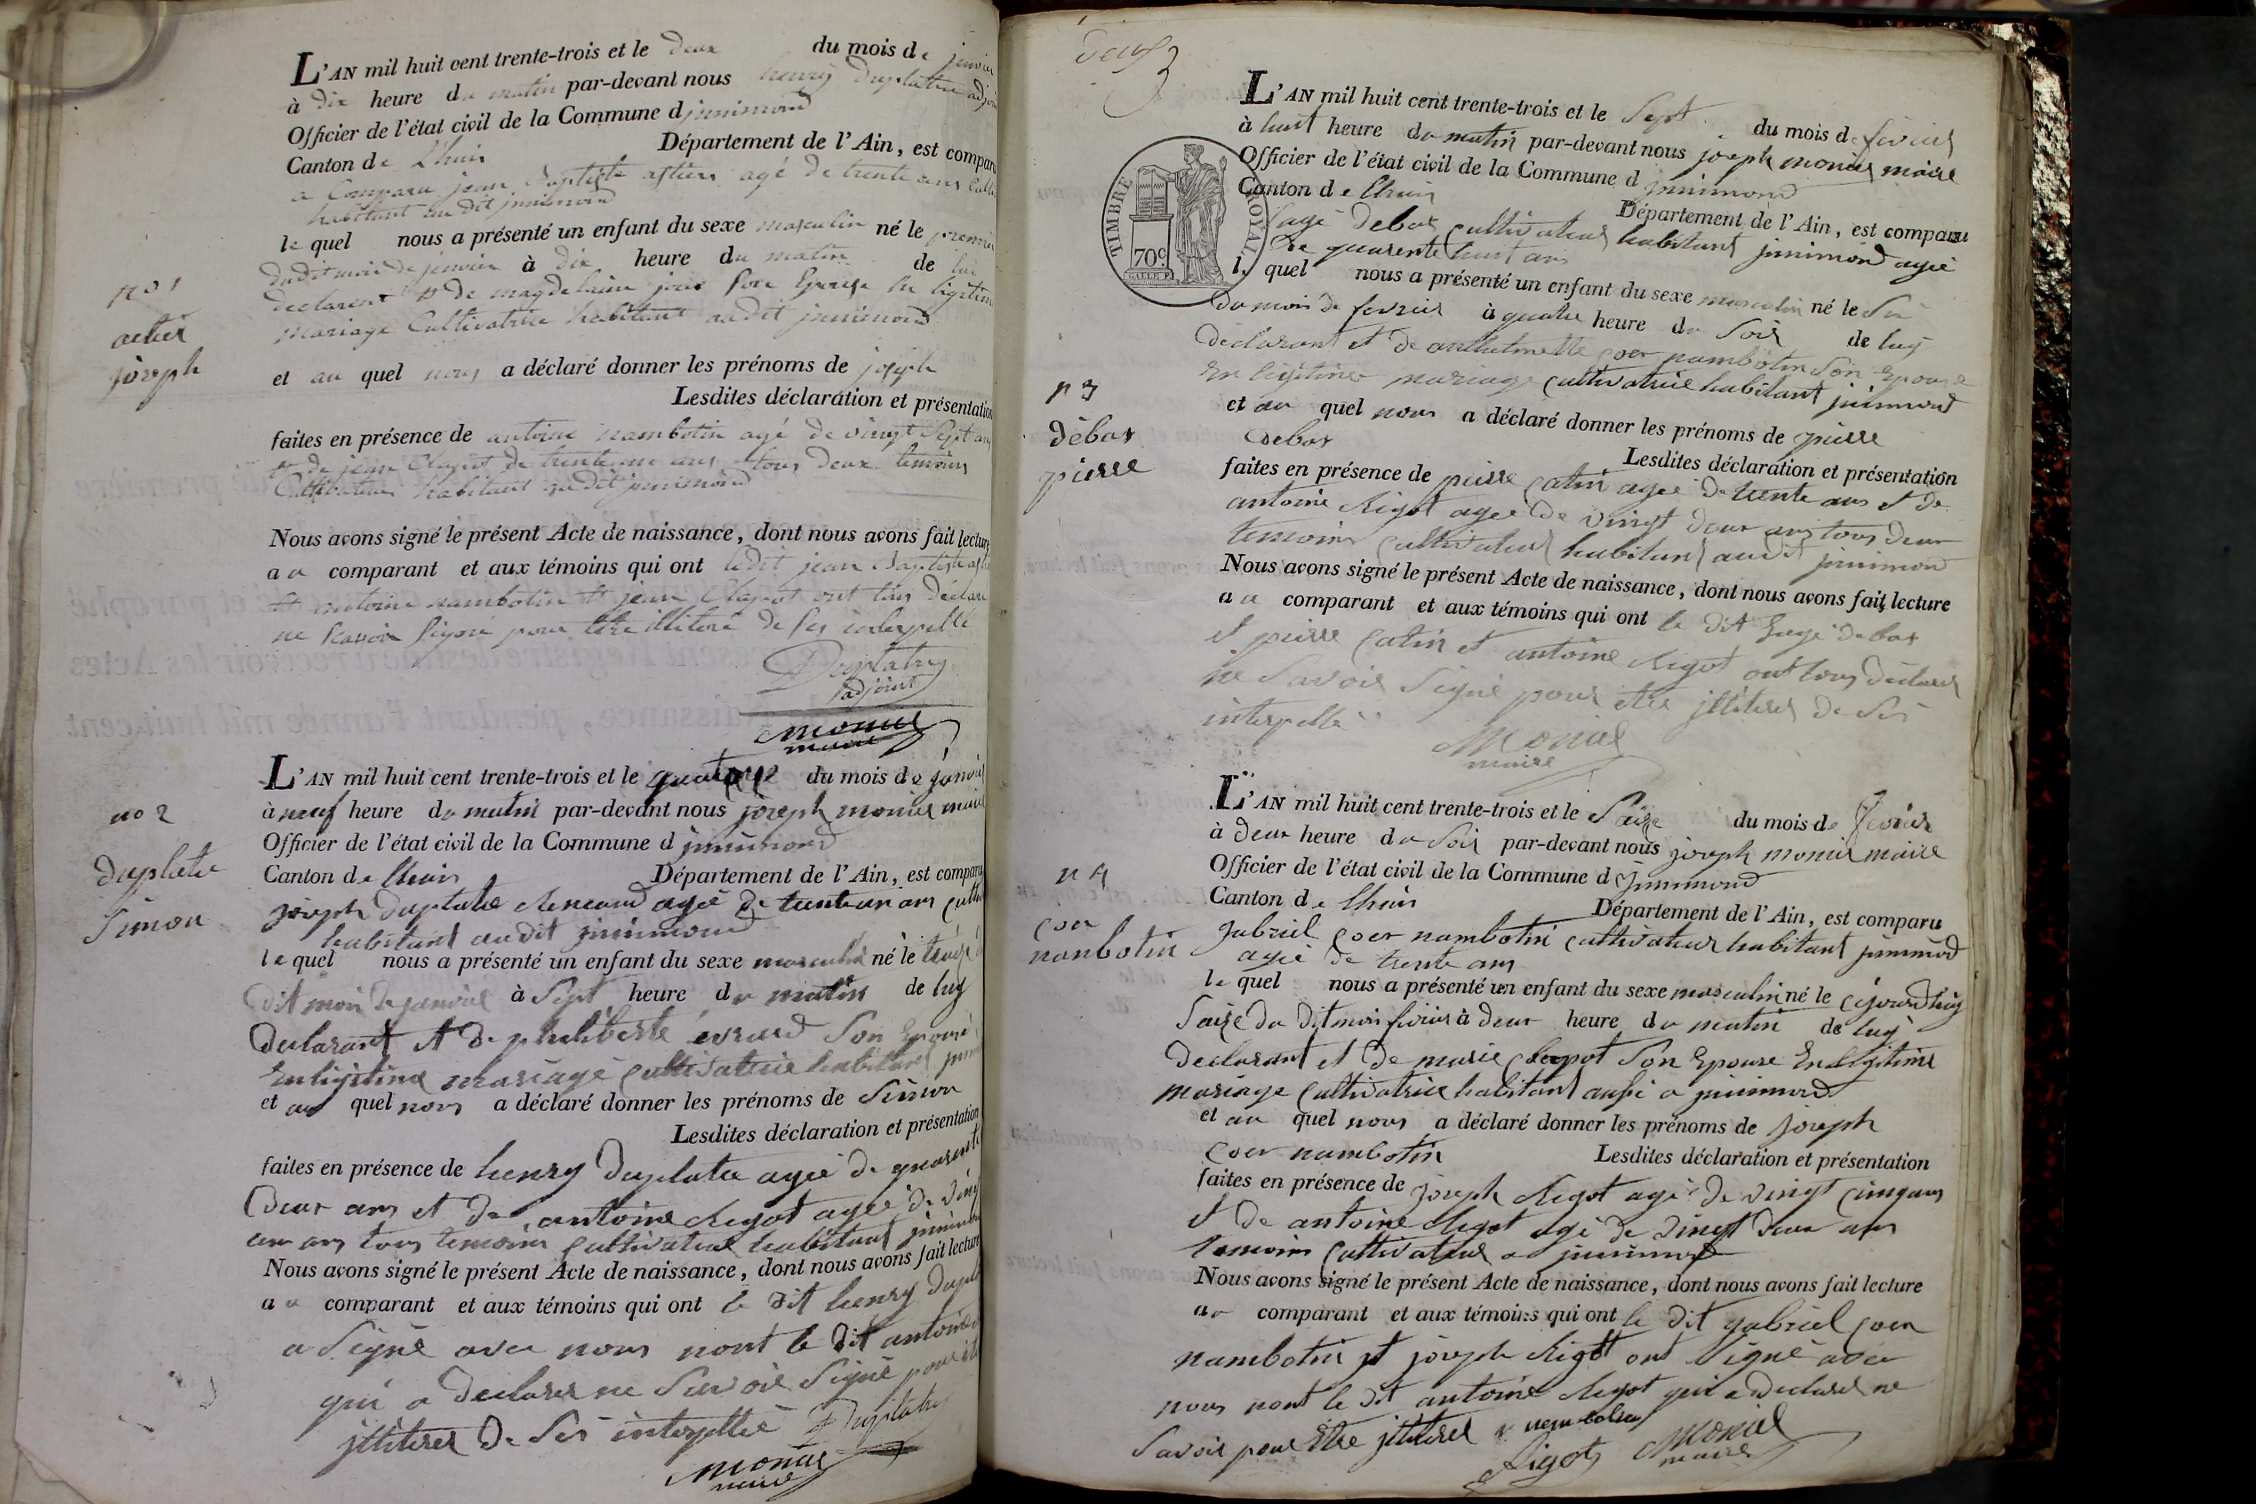 L'AN mil huit cent trente-trois et le deux du mois de janvier
à dix heure du matin par-devant nous henry Duplatre adjoint
Officier de l'état civil de la Commune d jnnimond
Canton de L'huis Département de l'Ain, est comparu
a Comparu jean Baptiste agé de trente ans
habitant au dit jnnimond
le quel nous a présenté un enfant du sexe masculin né le premier
dudit mois de janvier à dix heure du matin de lui
déclarent et de magdelaine son Epouse en legitime
mariage Cultivatrice habitant audit jnnimond
no 1
astier
joseph
et au quel nous a déclaré donner les prénoms de joseph
Lesdites déclaration et présentation
faites en présence de antoine nambotin agé de vingt Sept ans
et de jean Claput de trente un ans tous deux temoins
Cultivateurs habitant au dit jnnimond
Nous avons signé le présent Acte de naissance, dont nous avons fait lecture
au comparant et aux témoins qui ont ledit jean Baptiste
et antoine nambotin et jean ont tous déclaré
ne savoir signé pour être illiteré de ses interpellé
Duplatre
adjoint
monier
maire
L'AN mil huit cent trente-trois et le quatorze du mois de janvier
à neuf heure du matin par-devant nous joseph monier maire
Officier de l'état civil de la Commune d jnnimond
Canton de lhuis Département de l'Ain, est comparu
no 2
duplatre
Simon
joseph duplatre agée de trente un ans
habitant audit jnnimond
le quel nous a présenté un enfant du sexe masculin né le
dit mois de janvier à Sept heure du matin de luy
declarant et de philiberte evrard Son Epouse
En ligitime mariage Cultivatrice habitant
et au quel nous a déclaré donner les prénoms de Simon
Lesdites déclaration et présentation
faites en présence de henry duplatre agée de quarente
Deux ans et de antoine Rigot agée de vingt
un ans tous temoins Cultivateur habitant jnnimond
Nous avons signé le présent Acte de naissance, dont nous avons fait lecture
au comparant et aux témoins qui ont le dit henry
a Signé avec nous nont le dit antoine
qui a declarer ne Savoir Signé pour
jlliterer De Ses interpellé Duplatre
monier
maire
deux
L'AN mil huit cent trente-trois et le Sept du mois de fevrier
à huit heure du matin par-devant nous joseph monier maire
Officier de l'état civil de la Commune d jnnimond
Canton de lhuis Département de l'Ain, est comparu
TIMBRE ROYAL
70c
debat Cultivateur habitant jnnimond agée
De quarente huit ans
le quel nous a présenté un enfant du sexe masculin né le Six
du mois de fevrier à quatre heure du Soir de luy
declarant et de coer nambotin Son Epouse
En legitime mariage Cultivatrice habitant jnnimond
n 3
débat
pierre
et au quel nous a déclaré donner les prénoms de pierre
debat Lesdites déclaration et présentation
faites en présence de pierre Catin agée de trente ans et de
antoine Rigot agée de vingt deux ans tous deux
temoins Cultivateur habitant audit jnnimond
Nous avons signé le présent Acte de naissance, dont nous avons fait lecture
au comparant et aux témoins qui ont le dit debat
et pierre Catin et antoine Rigot ont tous declarer
ne Savoir Signé pour etre jlliterer de Ses
interpellé
Monier
maire
L'AN mil huit cent trente-trois et le Saize du mois de fevrier
à deux heure du Soir par-devant nous joseph monier maire
Officier de l'état civil de la Commune d jnnimond
Canton de lhuis Département de l'Ain, est comparu
n 4
coer
nambotin
gabriel coer nambotin cultivateur habitant jnnimond
agée de trente ans
le quel nous a présenté un enfant du sexe masculin né le cejourdhuy
Saize du dit mois fevrier à deux heure du matin de luy
declarant et de marie Son Epouse En legitime
mariage Cultivatrice habitant aussi a jnnimond
et au quel nous a déclaré donner les prénoms de joseph
coer nambotin Lesdites déclaration et présentation
faites en présence de joseph Rigot agé de vingt cinq ans
et de antoine Rigot agé de vingt deux ans
temoins Cultivateur a jnnimond
Nous avons signé le présent Acte de naissance, dont nous avons fait lecture
au comparant et aux témoins qui ont le dit gabriel coer
nambotin et joseph Rigot ont Signé avec
nous nont le dit antoine Rigot qui a declarer ne
Savoir pour Etre jlliterer nambotin
Rigot Monier
maire